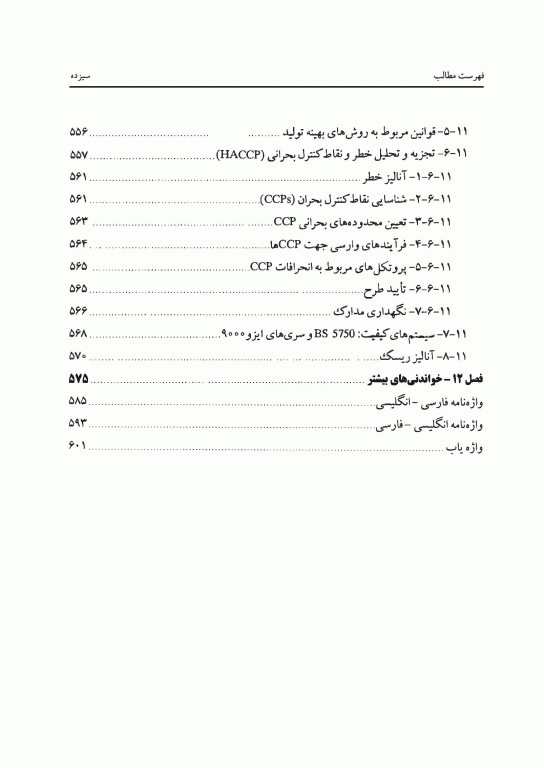 فهرست مطالب سیزده
۱۱-۵- قوانین مربوط به روش‌های بهینه تولید ۵۵۶
۱۱-۶- تجزیه و تحلیل خطر و نقاط کنترل بحرانی (HACCP) ۵۵۷
۱۱-۶-۱- آنالیز خطر ۵۶۱
۱۱-۶-۲- شناسایی نقاط کنترل بحران (CCPs) ۵۶۱
۱۱-۶-۳- تعیین محدوده‌های بحرانی CCP ۵۶۳
۱۱-۶-۴- فرآیندهای وارسی جهت CCPها ۵۶۴
۱۱-۶-۵- پروتکل‌های مربوط به انحرافات CCP ۵۶۵
۱۱-۶-۶- تأیید طرح ۵۶۵
۱۱-۶-۷- نگهداری مدارک ۵۶۶
۱۱-۷- سیستم‌های کیفیت: BS 5750 و سری‌های ایزو ۹۰۰۰ ۵۶۸
۱۱-۸- آنالیز ریسک ۵۷۰
فصل ۱۲ - خواندنی‌های بیشتر ۵۷۵
واژه‌نامه فارسی - انگلیسی ۵۸۵
واژه‌نامه انگلیسی - فارسی ۵۹۳
واژه یاب ۶۰۱